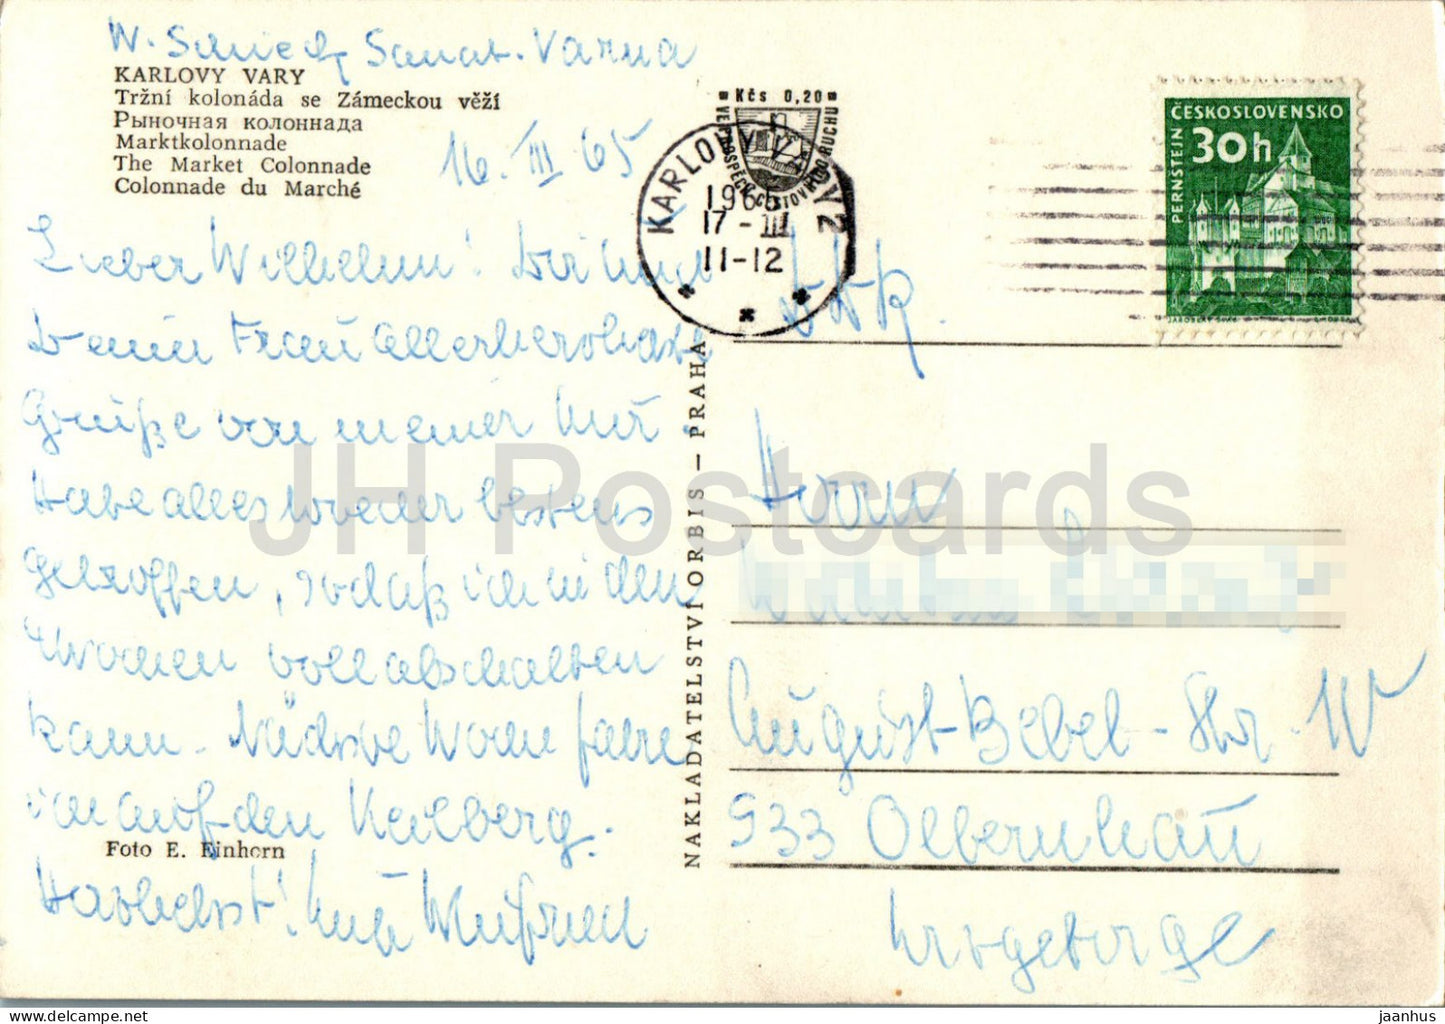 W. Schieck, Sanat. Varna
KARLOVY VARY
Tržní kolonáda se Zámeckou věží
Рыночная колоннада
Marktkolonnade
The Market Colonnade
Colonnade du Marché
16. III 65
Lieber Wilhelm! Dir und
Deiner Frau allerherzlichste
Grüße von meiner Kur.
Habe alles wieder bestens
getroffen, sodaß ich die
4 Wochen voll abschalten
kann. Nächste Woche fahre
ich auf den Keilberg.
Foto E. Einhorn
Herzlichst!
Winfried
NAKLADATELSTVÍ ORBIS – PRAHA
Kčs 0,20
VE PROSPĚCH CESTOVNÍHO RUCHU
KARLOVY VARY 2
1965
17-III
11-12
ČESKOSLOVENSKO
30h
PERNŠTEJN
DDR.
Herrn
August-Bebel-Str. W
933 Olbernhau
Erzgebirge
JH Postcards
jaanhus — https://www.delcampe.net